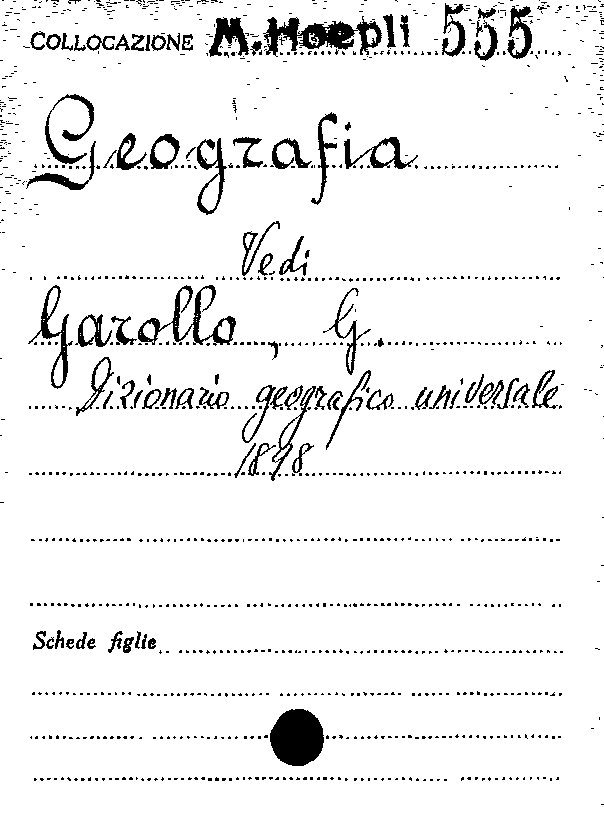 COLLOCAZIONE M. Hoepli 555
Geografia
Vedi
Garollo, G.
Dizionario geografico universale
1898
Schede figlie